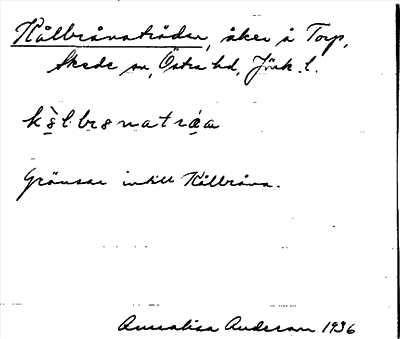 Kålbrånaträdan, åker å Torp,
Skede sn, Östra hd, Jönk. l.
kålbrsnatráa
Gränsar intill Kålbråna.
Annalisa Anderson 1936